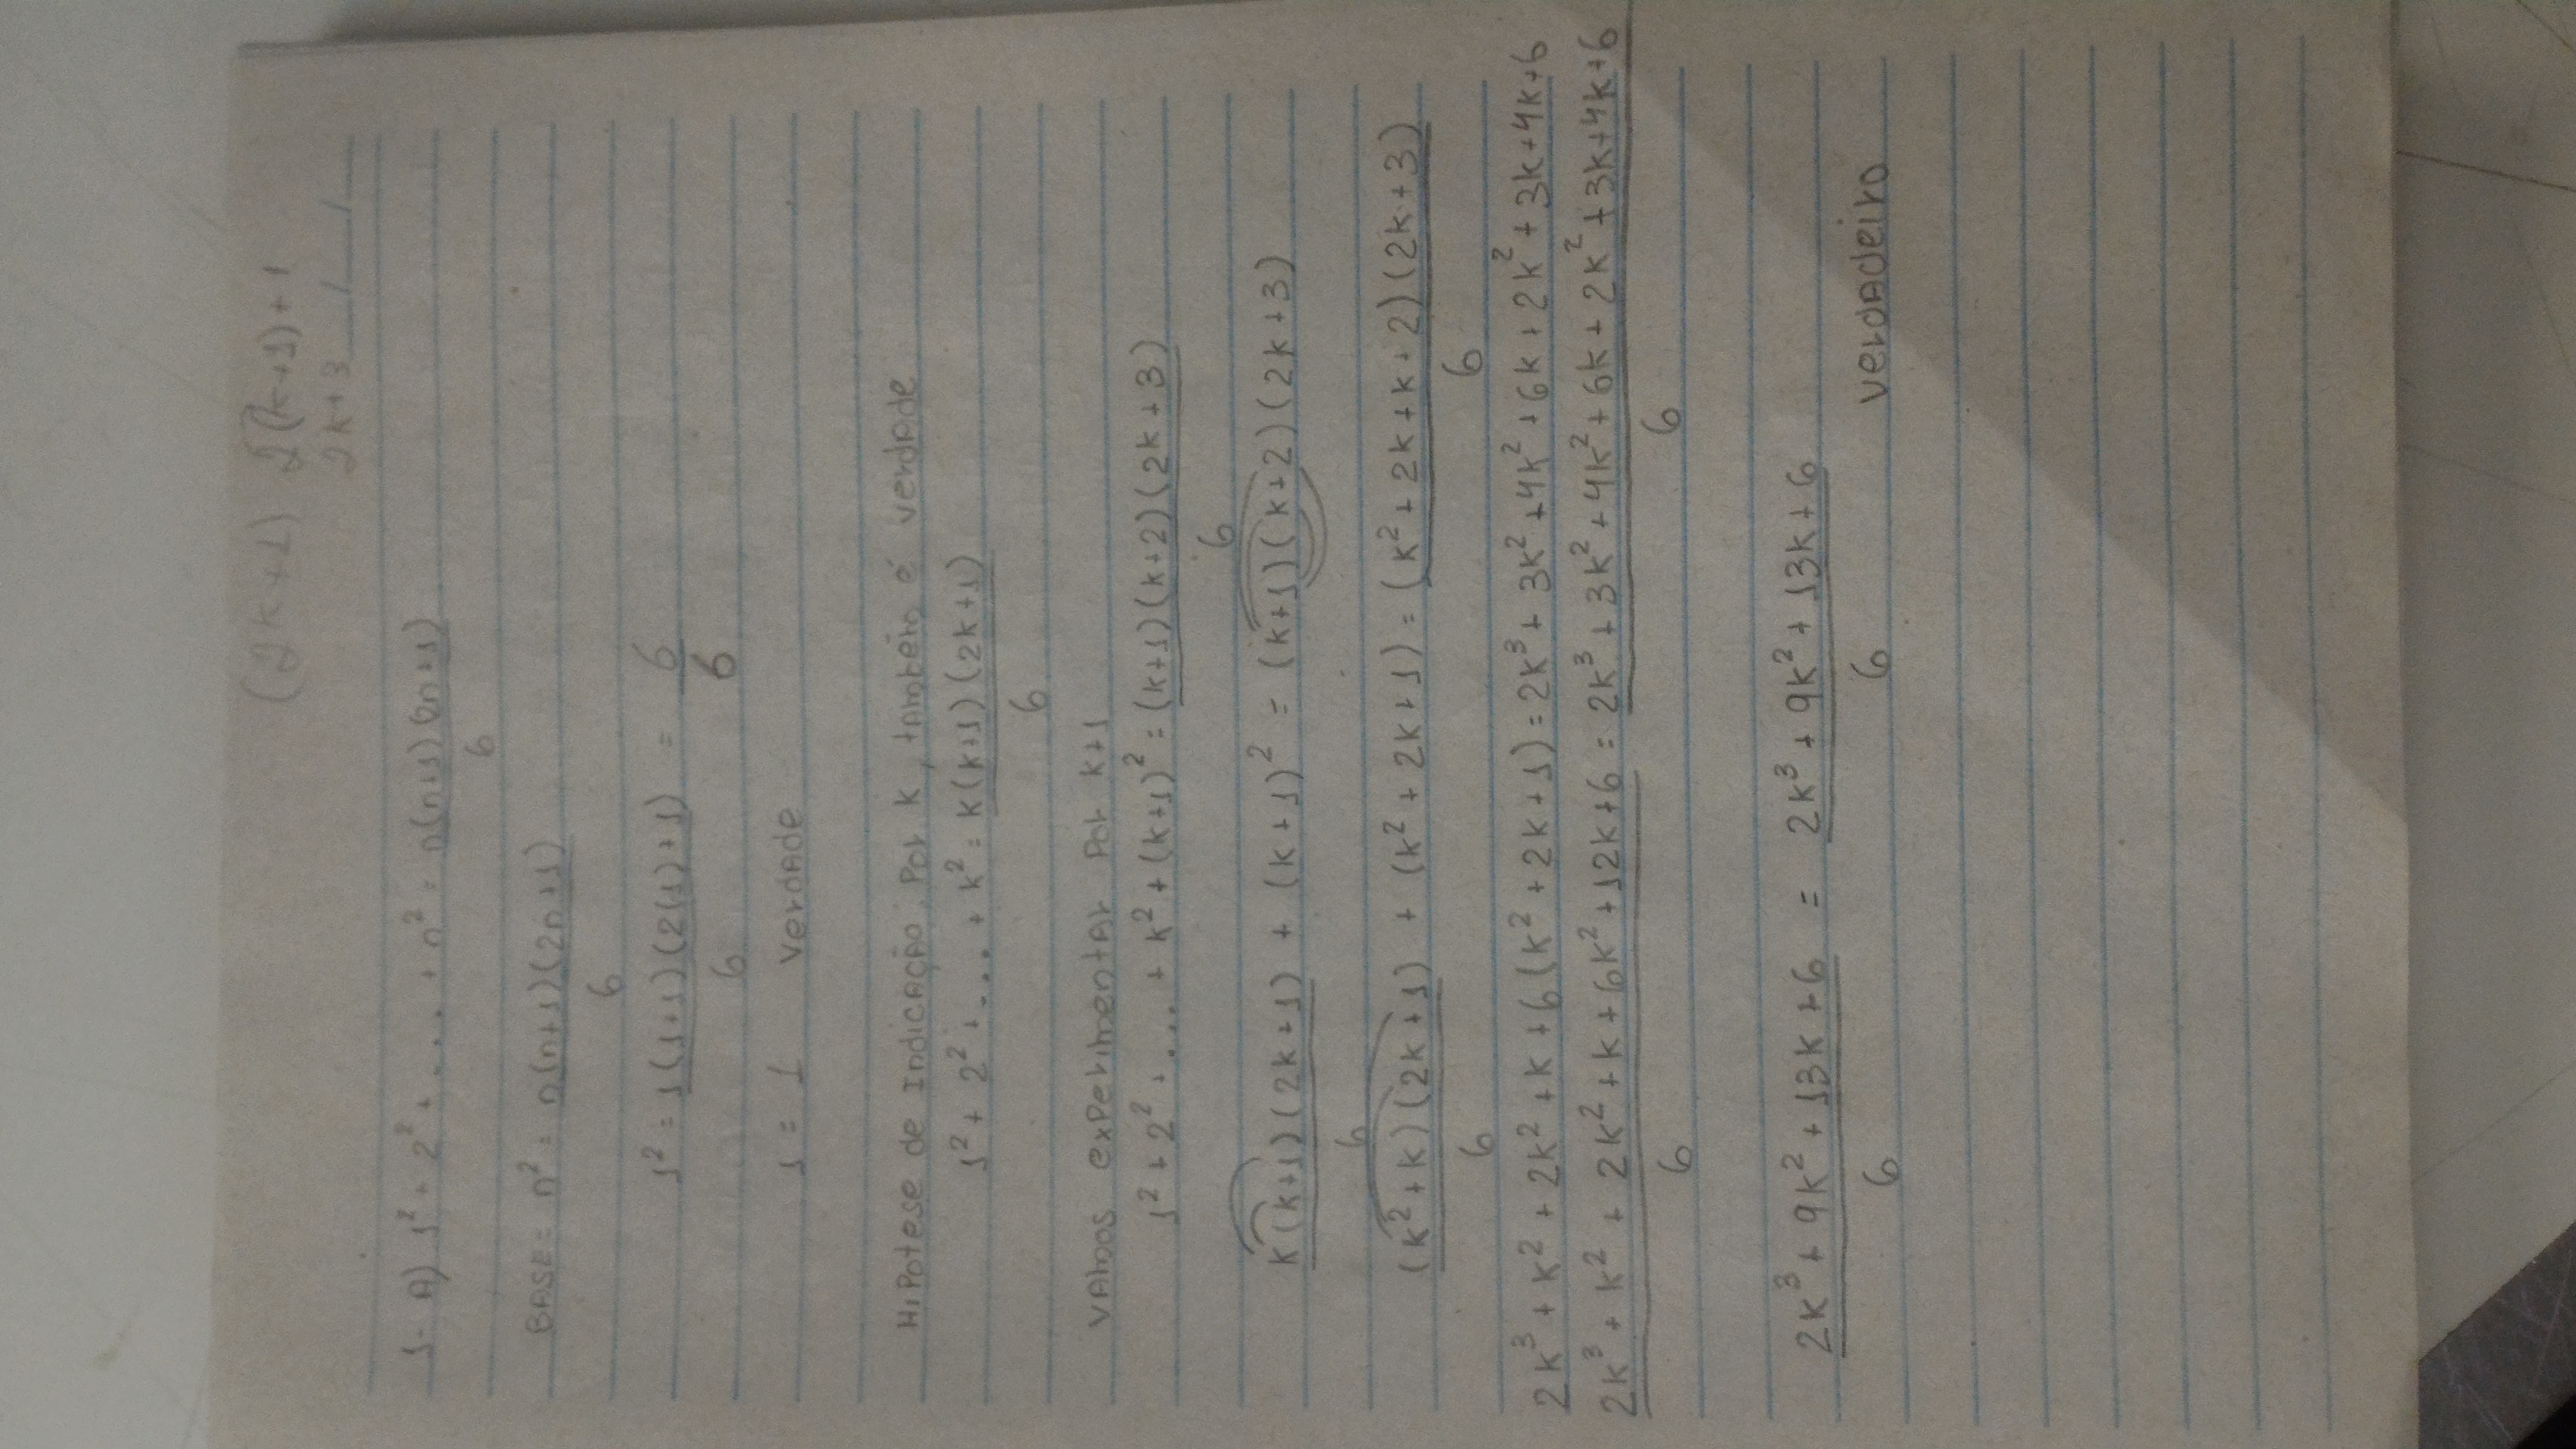 (2k+1) 2(k+1)+1
2k+3 / /
1- A) 1² + 2² + . . . + n² = n(n+1)(2n+1)
6
BASE = n² = n(n+1)(2n+1)
6
1² = 1(1+1)(2(1)+1) = 6
6 6
1 = 1 Verdade
Hipotese de Indicação: Por k, também é verdade
1² + 2² + . . . + k² = k(k+1)(2k+1)
6
Vamos experimentar por k+1
1² + 2² + . . . + k² + (k+1)² = (k+1)(k+2)(2k+3)
6
k(k+1)(2k+1) + (k+1)² = (k+1)(k+2)(2k+3)
6
(k²+k)(2k+1) + (k²+2k+1) = (k²+2k+k+2)(2k+3)
6 6
2k³ + k² + 2k² + k + 6(k²+2k+1) = 2k³ + 3k² + 4k² + 6k + 2k² + 3k + 4k + 6
2k³ + k² + 2k² + k + 6k² + 12k + 6 = 2k³ + 3k² + 4k² + 6k + 2k² + 3k + 4k + 6
6 6
2k³ + 9k² + 13k + 6 = 2k³ + 9k² + 13k + 6
6 6 verdadeiro